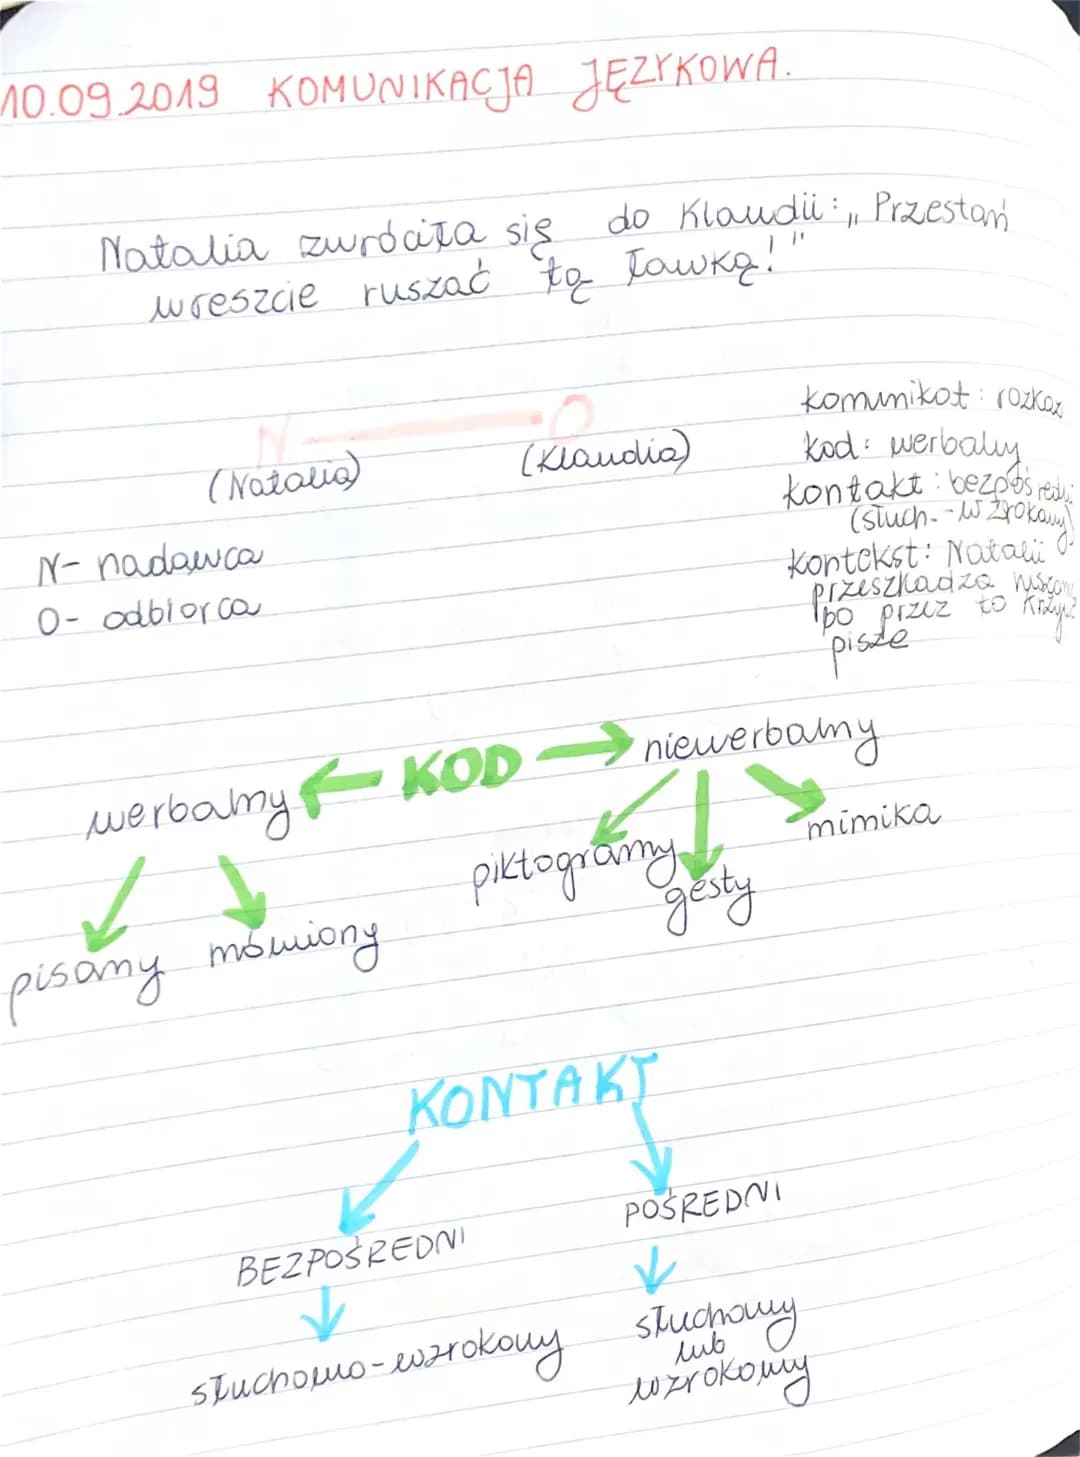 10.09.2019 KOMUNIKACJA JĘZYKOWA.
Natalia zwróciła się do Klaudii: „Przestań
wreszcie ruszać tą ławką!"
N O
(Natalia) (Klaudia)
N- nadawca
O- odbiorca
komunikat: rozkaz
kod: werbalny
kontakt: bezpośredni
(słuch.-wzrokowy)
kontekst: Natalii
przeszkadza
bo przez to
pisze
werbalny KOD niewerbalny
pisany mówiony piktogramy gesty mimika
KONTAKT
BEZPOŚREDNI POŚREDNI
słuchowo-wzrokowy słuchowy
lub
wzrokowy